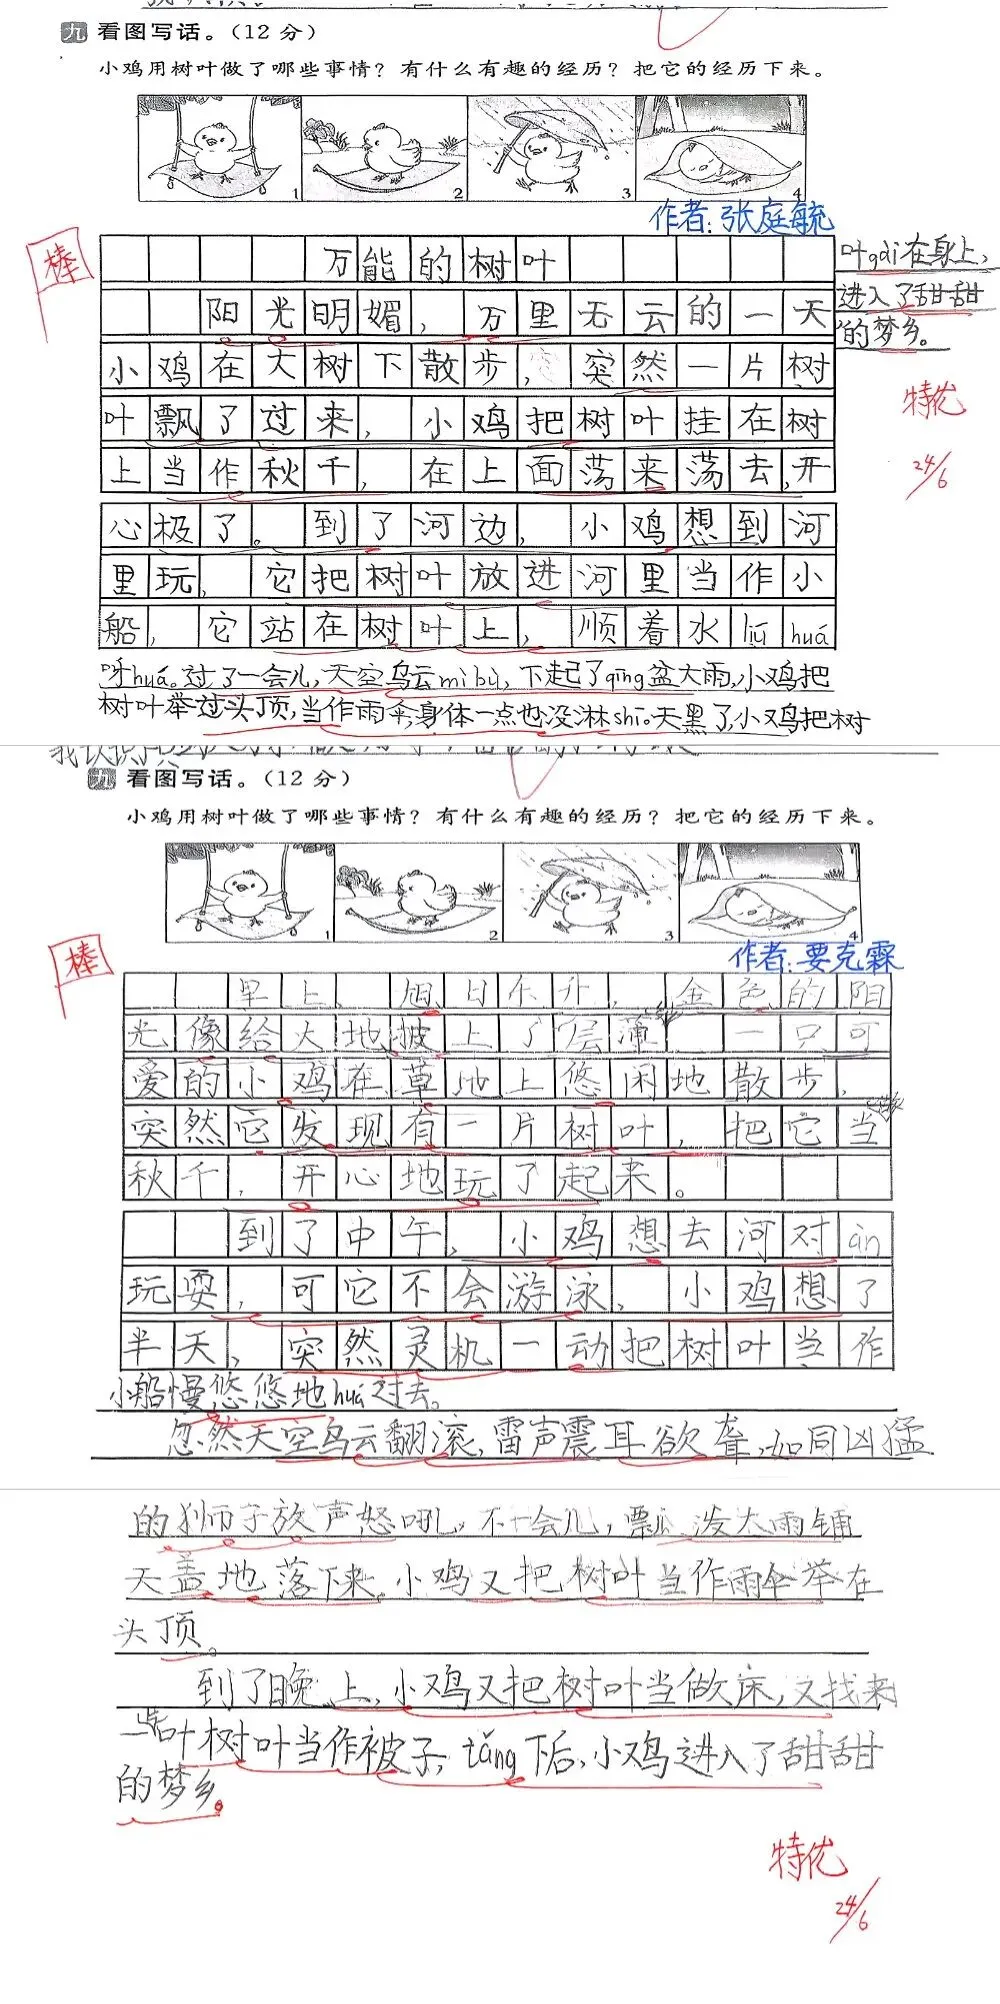 九 看图写话。（12 分）
小鸡用树叶做了哪些事情？有什么有趣的经历？把它的经历下来。
1 2 3 4
作者：张庭毓
棒
万能的树叶
阳光明媚，万里无云的一天
小鸡在大树下散步，突然一片树
叶飘了过来，小鸡把树叶挂在树
上当作秋千，在上面荡来荡去，开
心极了。到了河边，小鸡想到河
里玩，它把树叶放进河里当作小
船，它站在树叶上，顺着水liú huá
呀huá。过了一会儿，天空乌云mì bù，下起了qīng盆大雨，小鸡把
树叶举过头顶，当作雨伞，身体一点也没淋shī。天黑了，小鸡把树
叶gài在身上，
进入了甜甜
的梦乡。
特优
24/6
九 看图写话。（12 分）
小鸡用树叶做了哪些事情？有什么有趣的经历？把它的经历下来。
1 2 3 4
作者：要克霖
棒
早上，旭日东升，金色的阳
光像给大地披上了层薄纱 一只可
爱的小鸡在草地上悠闲地散步，
突然它发现有一片树叶，把它当
秋千，开心地玩了起来。
到了中午，小鸡想去河对àn
玩耍，可它不会游泳，小鸡想了
半天，突然灵机一动把树叶当作
小船慢悠悠地huá过去。
忽然天空乌云翻滚，雷声震耳欲聋，如同凶猛
的狮子放声怒吼。不一会儿，瓢泼大雨铺
天盖地落下来，小鸡又把树叶当作雨伞举在
头顶。
到了晚上，小鸡又把树叶当做床，又找来
一些叶树叶当作被子，tǎng下后，小鸡进入了甜甜
的梦乡。
特优
24/6